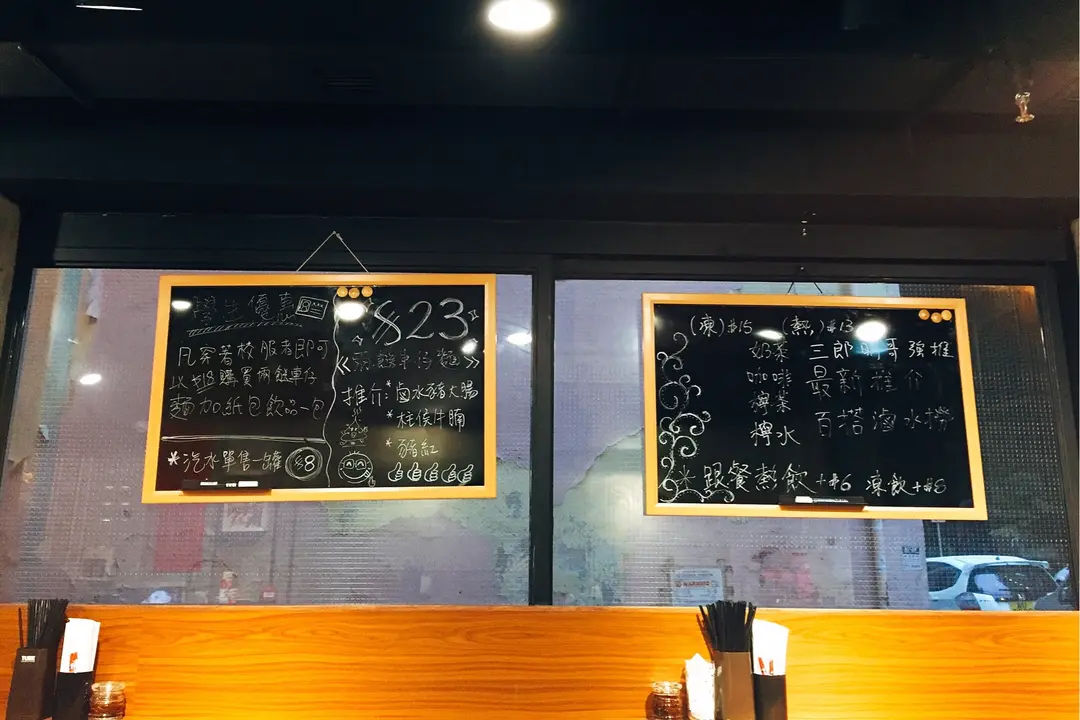 學生優惠
凡穿著校服者即可
以$18購買兩餸車仔
麵加紙包飲品一包
*汽水單售一罐 $8
$23
餸車仔麵》
推介:*鹵水豬大腸
*柱侯牛腩
*豬紅
(凍)$15 (熱)$13
奶茶
咖啡
檸茶
檸水
三郎 哥強推
最新推介
百搭滷水撈
*跟餐熱飲+$6 凍飲+$8